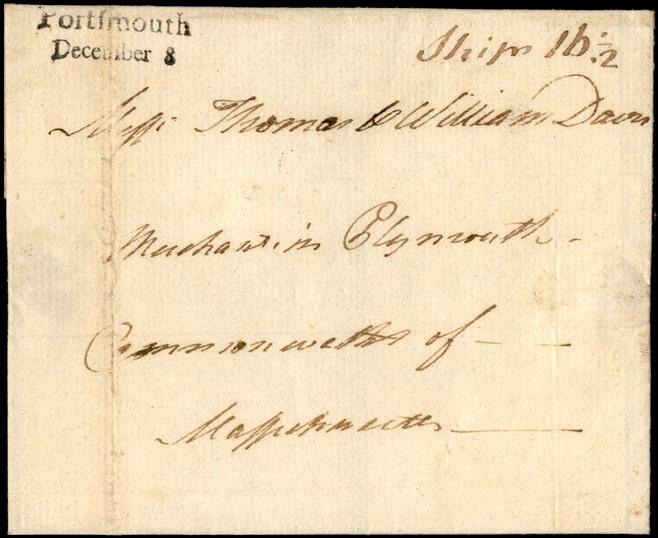 Portsmouth
December 8
Ship 16 1/2
Messrs Thomas & William Davis
Merchants in Plymouth
Commonwealth of
Massachusetts